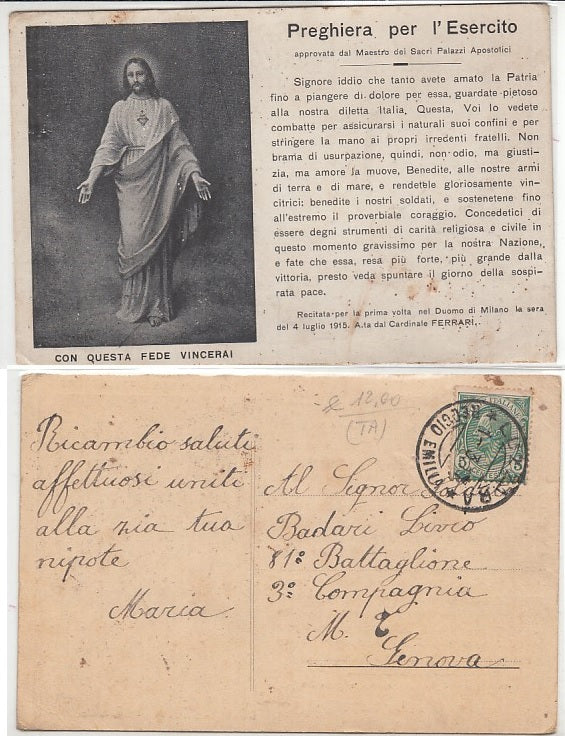 Preghiera per l'Esercito
approvata dal Maestro dei Sacri Palazzi Apostolici
Signore iddio che tanto avete amato la Patria
fino a piangere di dolore per essa, guardate pietoso
alla nostra diletta Italia. Questa, Voi lo vedete
combatte per assicurarsi i naturali suoi confini e per
stringere la mano ai propri irredenti fratelli. Non
brama di usurpazione, quindi, non odio, ma giusti-
zia, ma amore la muove, Benedite, alle nostre armi
di terra e di mare, e rendetele gloriosamente vin-
citrici: benedite i nostri soldati, e sostenetene fino
all'estremo il proverbiale coraggio. Concedetici di
essere degni strumenti di carità religiosa e civile in
questo momento gravissimo per la nostra Nazione,
e fate che essa, resa più forte, più grande dalla
vittoria, presto veda spuntare il giorno della sospi-
rata pace.
Recitata per la prima volta nel Duomo di Milano la sera
del 4 luglio 1915. A.ta dal Cardinale FERRARI.
CON QUESTA FEDE VINCERAI
12,00
(TA)
REGGIO EMILIA
Ricambio saluti
affettuosi uniti
alla zia tua
nipote
Maria
Al Signor
Badari Livio
81° Battaglione
3ª Compagnia
M. T
Genova